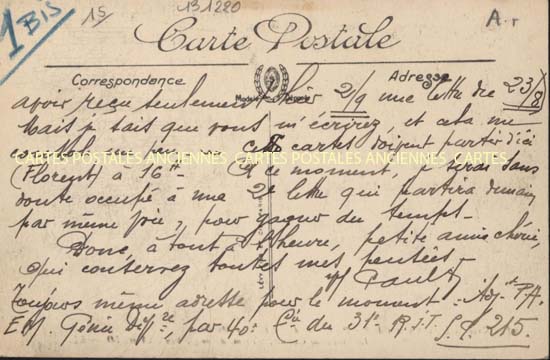 1 BIS
15
131220
A. r
Carte Postale
Correspondance
Adresse
avoir reçu seulement hier 2/9 une lettre du 23/8
Mais je sais que vous m'écrirez et cela me
console un peu. Ces cartes doivent partir d'ici
CARTES POSTALES ANCIENNES CARTES POSTALES ANCIENNES CARTES
(Florent) à 16H. A ce moment, je serai sans
doute occupé à une 2e lettre qui partira demain
par même voie, pour gagner du temps.
Donc, à tout à l'heure, petite amie chérie,
qui conservez toutes mes pensées.
Paul
Toujours même adresse pour le moment : Adjt P.A.
E.M. Génie, par 40e Cie du 31e R.I.T. S.P. 215.